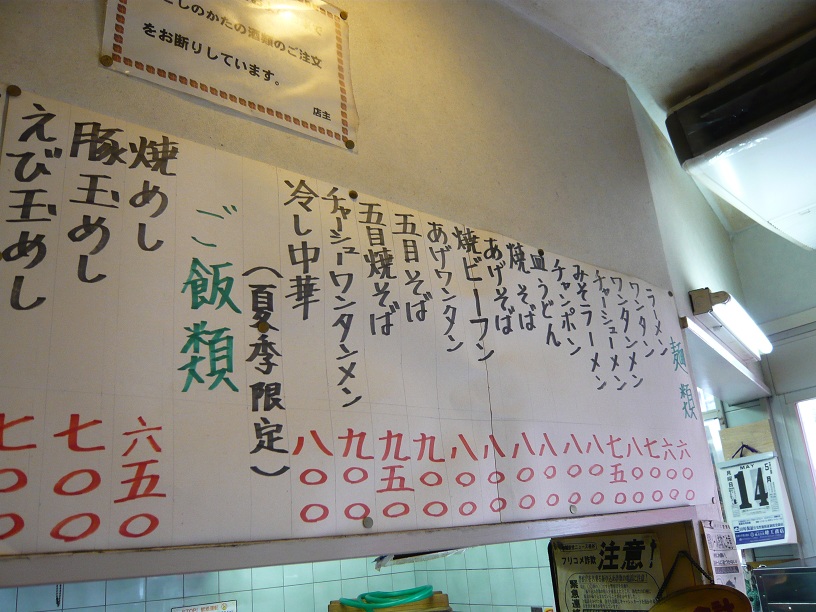 こしのかたの酒類のご注文
をお断りしています。
店主
麺類
ラーメン 六〇〇
ワンタン 六〇〇
ワンタンメン 七〇〇
チャーシューメン 八〇〇
みそラーメン 七五〇
チャンポン 八〇〇
皿うどん 八〇〇
焼そば 八〇〇
あげそば 八〇〇
焼ビーフン 八〇〇
あげワンタン 八〇〇
五目そば 九〇〇
五目焼そば 九五〇
チャーシューワンタンメン 九〇〇
冷し中華 八〇〇
(夏季限定)
ご飯類
焼めし 六五〇
豚玉めし 七〇〇
えび玉めし 七〇〇
MAY 5月
14
注意!